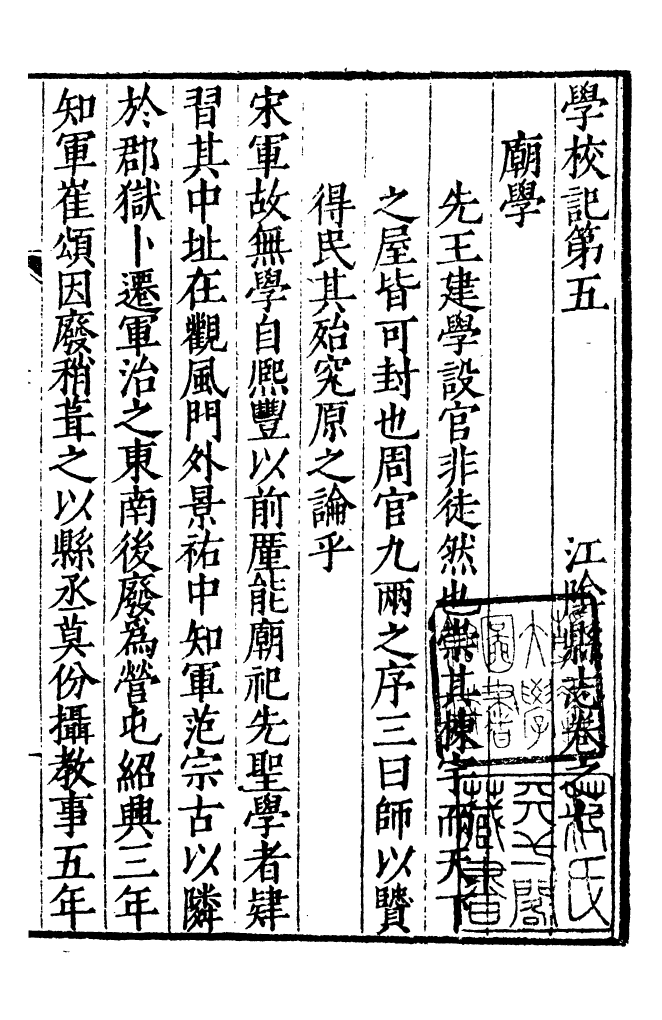 學校記第五　江陰縣志卷之
廟學
先王建學設官非徒然也崇其棟宇而天下
之屋皆可封也周官九兩之序三曰師以賢
得民其殆究原之論乎
宋軍故無學自熈豐以前厪能廟祀先聖學者肄
習其中址在觀風門外景祐中知軍范宗古以隣
於郡獄卜遷軍治之東南後廢為營屯紹興三年
知軍崔頌因廢稍葺之以縣丞莫份攝教事五年
大學
圖書
范氏
天一閣
藏書